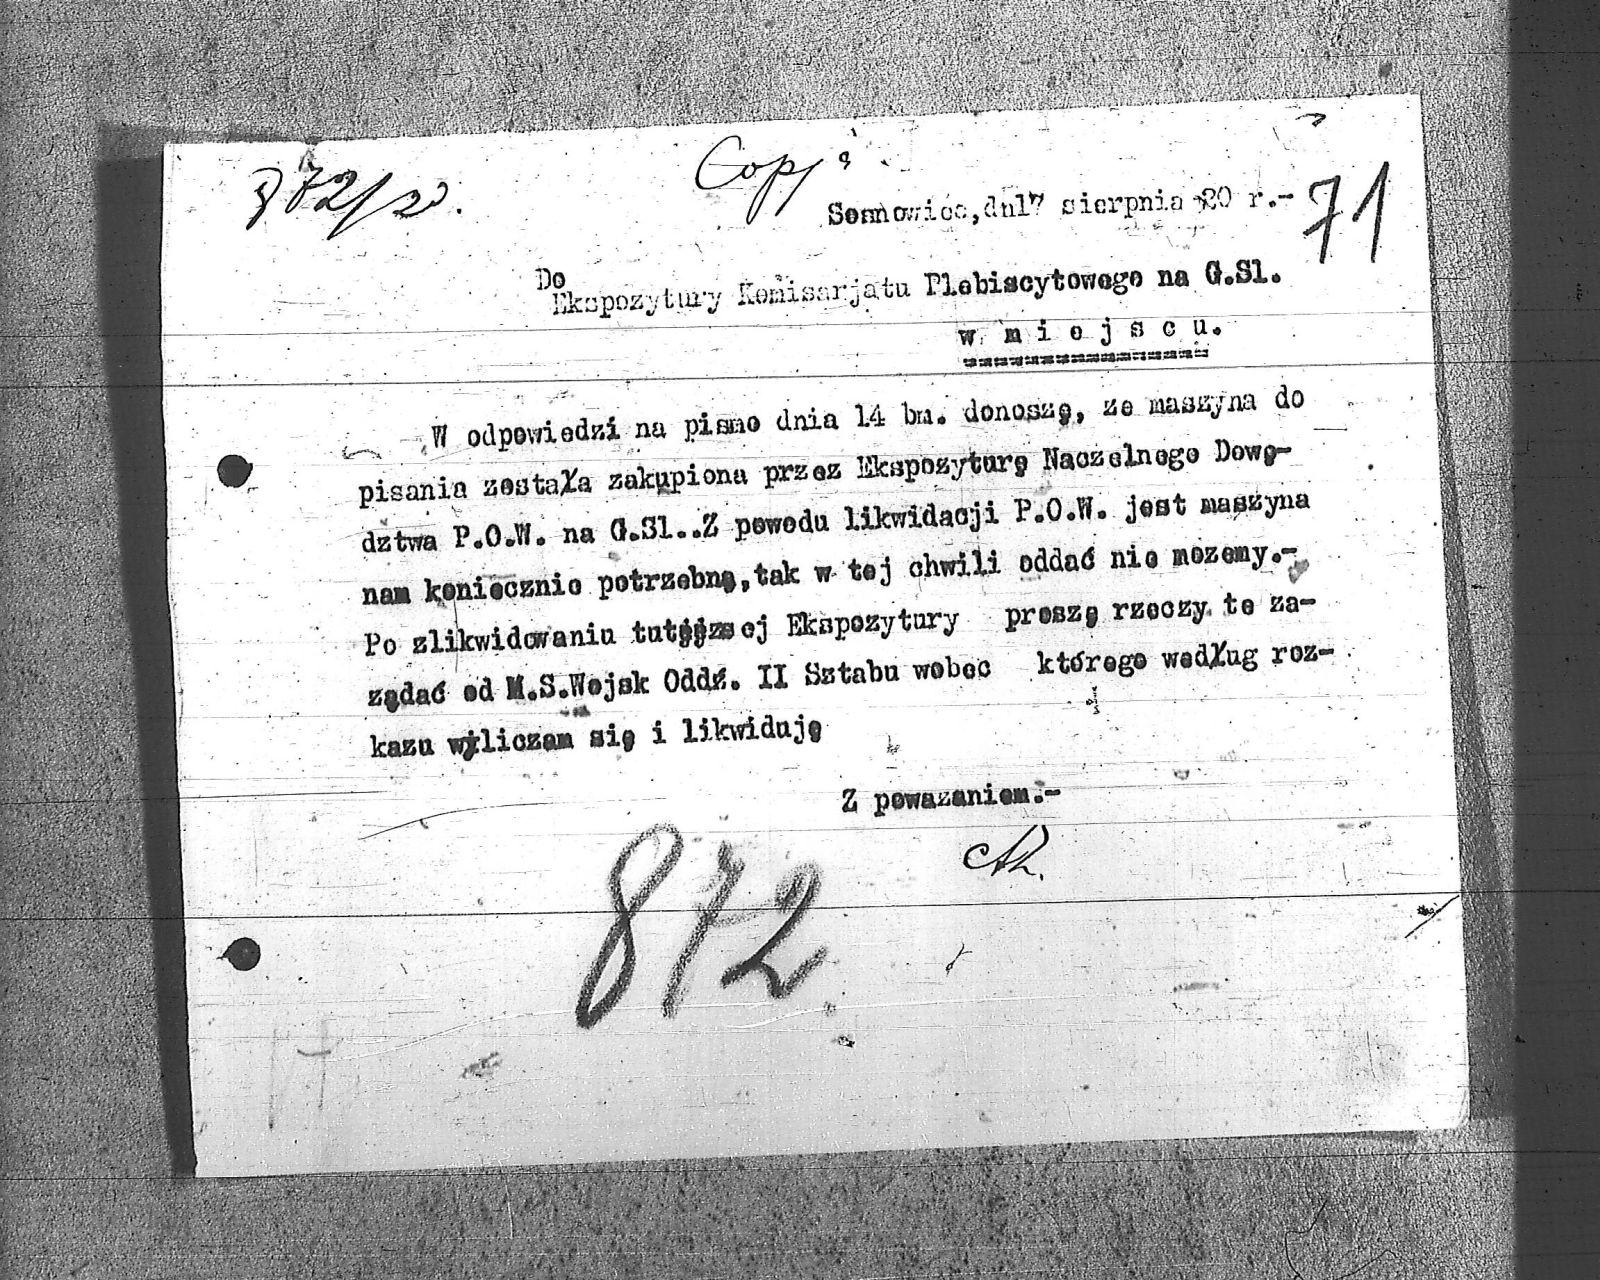 872/20.
Copja
71
Sosnowice,dn17 sierpnia 20 r.-
Do
Ekspozytury Komisarjatu Plebiscytowego na G.Sl.
w m i e j s c u.
W odpowiedzi na pismo dnia 14 bm. donoszę, ze maszyna do
pisania została zakupiona przez Ekspozyturę Naczelnego Dowo-
dztwa P.O.W. na G.Sl..Z powodu likwidacji P.O.W. jest maszyna
nam koniecznie potrzebna,tak w tej chwili oddać nie mozemy.-
Po zlikwidowaniu tutejszej Ekspozytury proszę rzeczy te za-
ządać od M.S.Wojsk Oddz. II Sztabu wobec którego według roz-
kazu wyliczam się i likwiduję
Z powazaniem.-
872